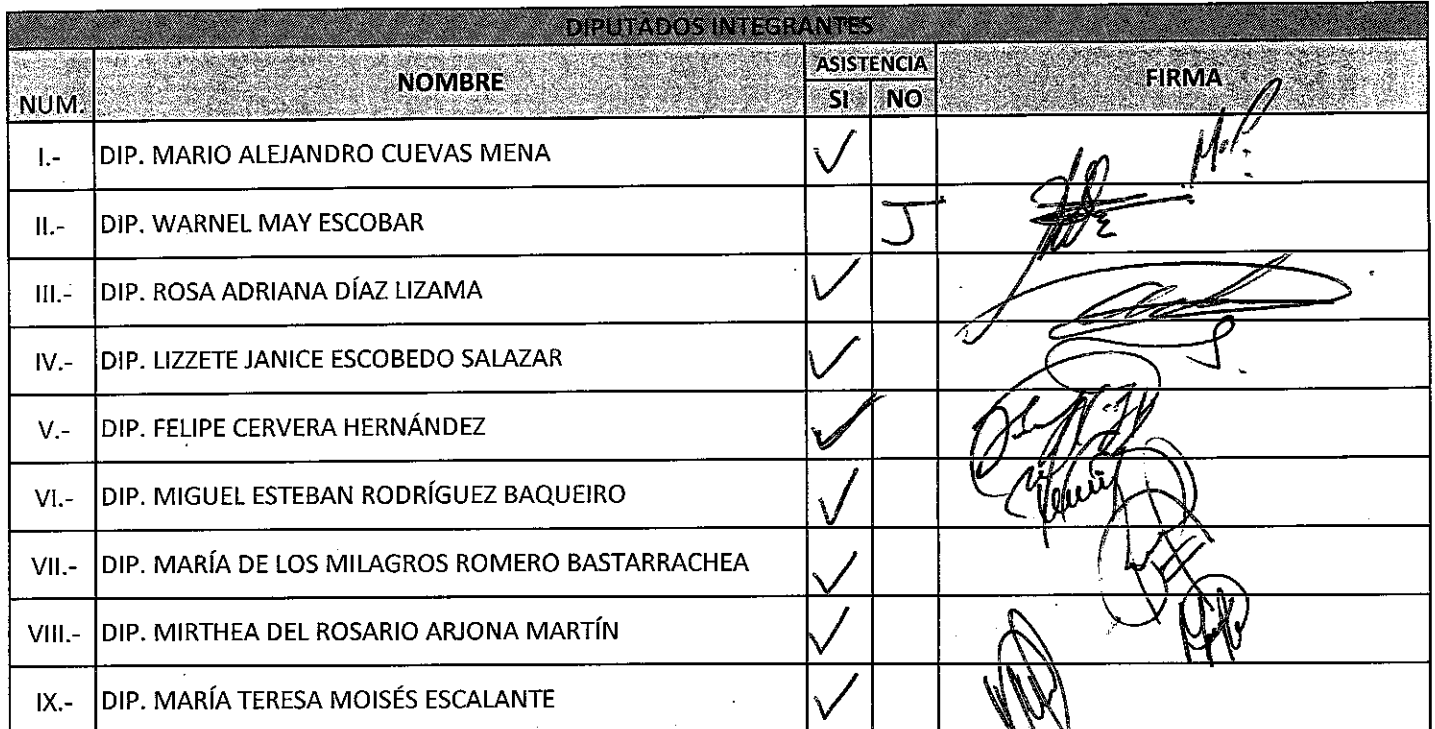 DIPUTADOS INTEGRANTES
NUM. NOMBRE ASISTENCIA FIRMA
SI NO
I.- DIP. MARIO ALEJANDRO CUEVAS MENA ✓
II.- DIP. WARNEL MAY ESCOBAR J
III.- DIP. ROSA ADRIANA DÍAZ LIZAMA ✓
IV.- DIP. LIZZETE JANICE ESCOBEDO SALAZAR ✓
V.- DIP. FELIPE CERVERA HERNÁNDEZ ✓
VI.- DIP. MIGUEL ESTEBAN RODRÍGUEZ BAQUEIRO ✓
VII.- DIP. MARÍA DE LOS MILAGROS ROMERO BASTARRACHEA ✓
VIII.- DIP. MIRTHEA DEL ROSARIO ARJONA MARTÍN ✓
IX.- DIP. MARÍA TERESA MOISÉS ESCALANTE ✓